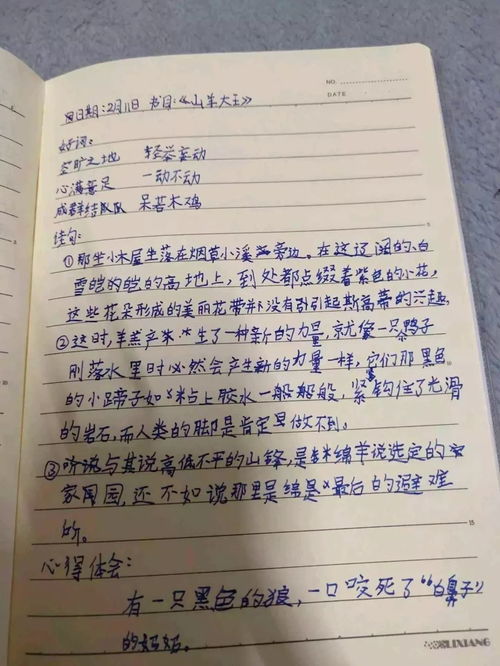 NO.
DATE
日期:2月11日 书目:《山羊大王》
好词:
空旷之地 轻举妄动
心满意足 一动不动
成群结队 呆若木鸡
佳句:
①那坐小木屋坐落在烟草小溪旁边。在这辽阔的白
雪皑皑的高地上,到处都点缀着紫色的小花,
这些花朵形成的美丽花带并没有引起斯高蒂的兴趣。
②这时,羊羔产生了一种新的力量,就像一只鸭子
刚落水里时必然会产生新的力量一样,它们那黑色
的小蹄子如粘上胶水一般般般,紧钩住了光滑
的岩石,而人类的脚是肯定早做不到。
③听说与其说高低不平的山峰,是绵羊说选定的
家园,还不如说那里是绵是最后的避难
的。
心得体会:
有一只黑色的狼,一口咬死了“白鼻子”
的妈妈。
5
10
15
LIXIANG